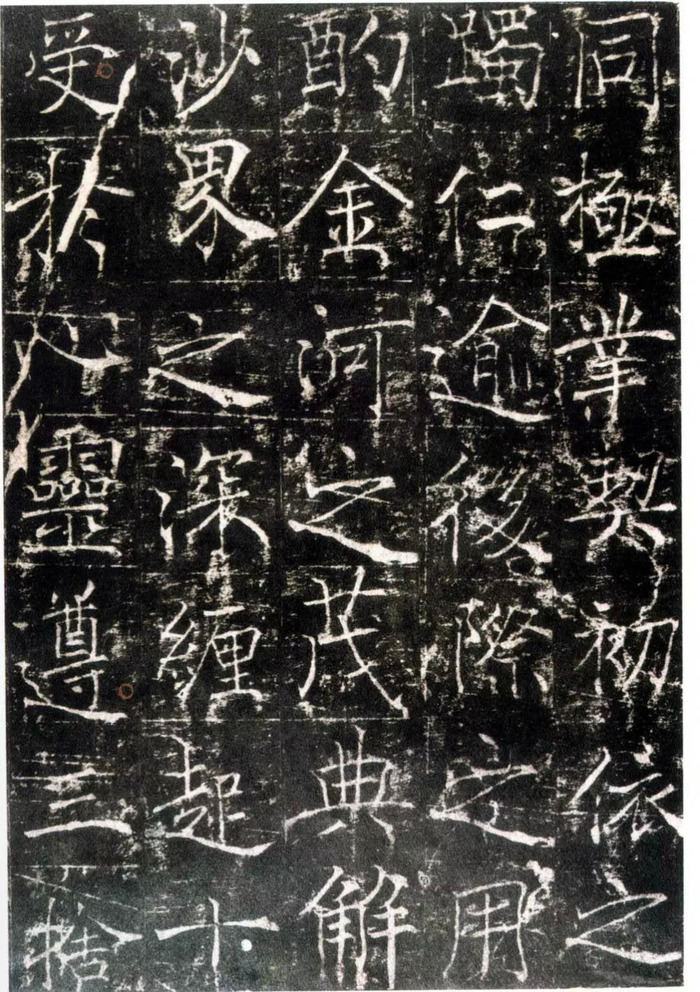 同極業契初依之
躅仁逾後際之用
酌金河之茂典解
沙界之深纏起十
受於八靈遵三